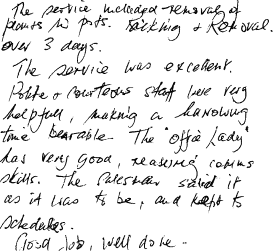 The service included removal of
plants in pots. Packing & Removal.
over 3 days.
The service was excellent.
Polite & courteous staff were very
helpful, making a harrowing
time bearable. The "office lady"
has very good, reassuring comms
skills. The salesman said it
as it was to be, and kept to
schedules.
Good job, well done.